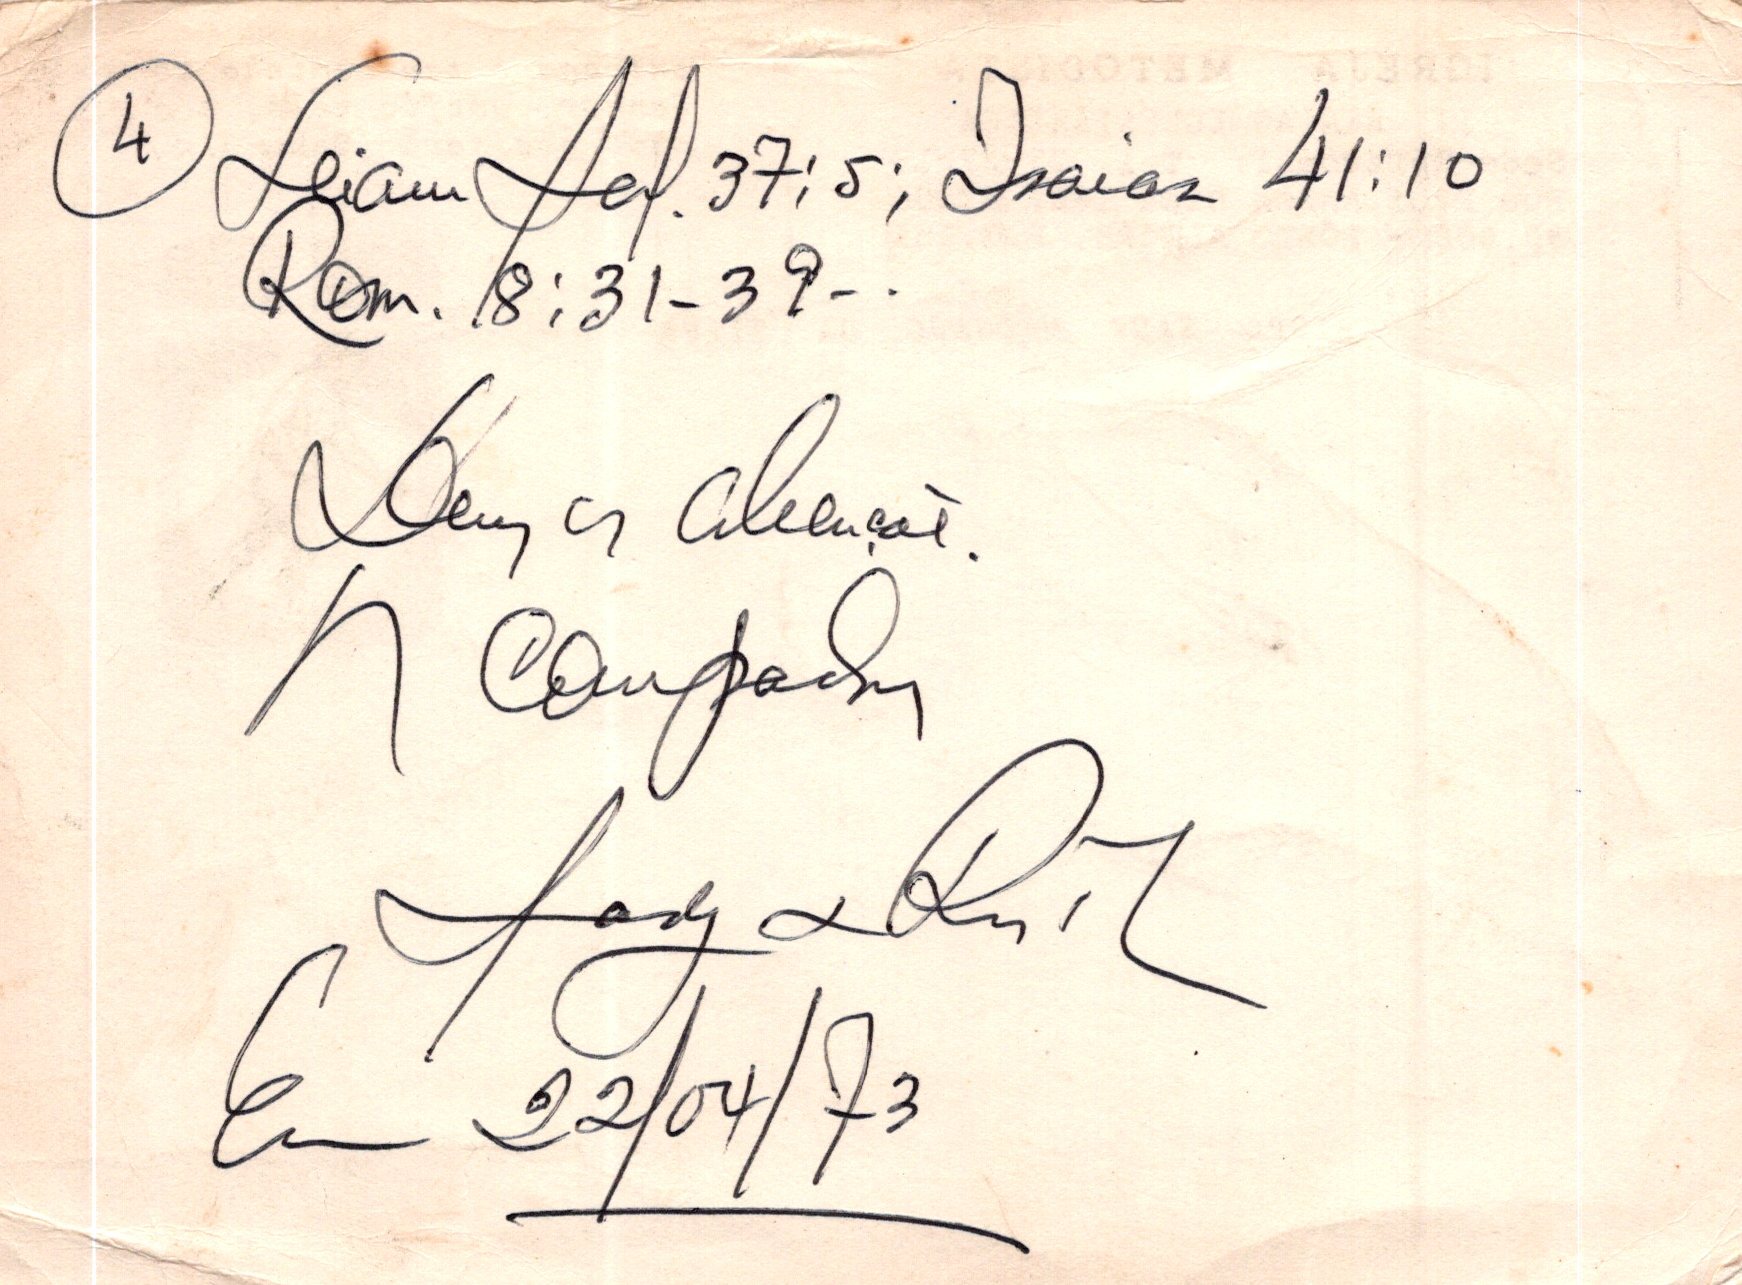 ④ Leiam Sal. 37:5; Isaias 41:10
Rom. 8:31-39-.
Deus os abençoe.
Compadre
e Ruth
Em 22/04/73